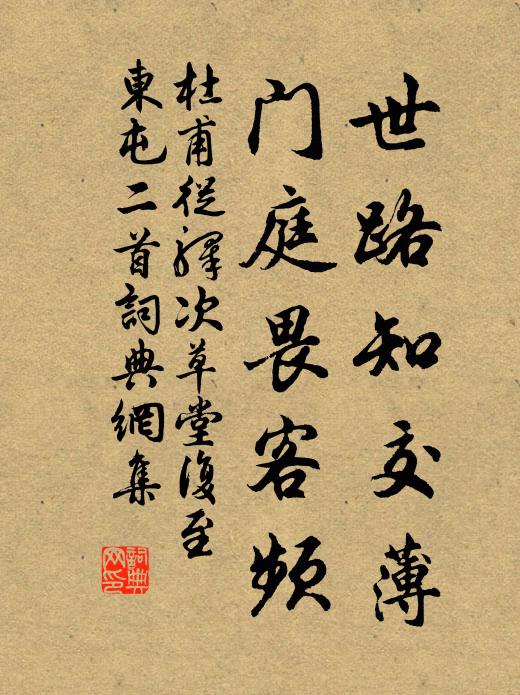 世路知交薄
門庭畏客頻
杜甫從驛次草堂復至
東屯二首詞典網集
詞典
网印